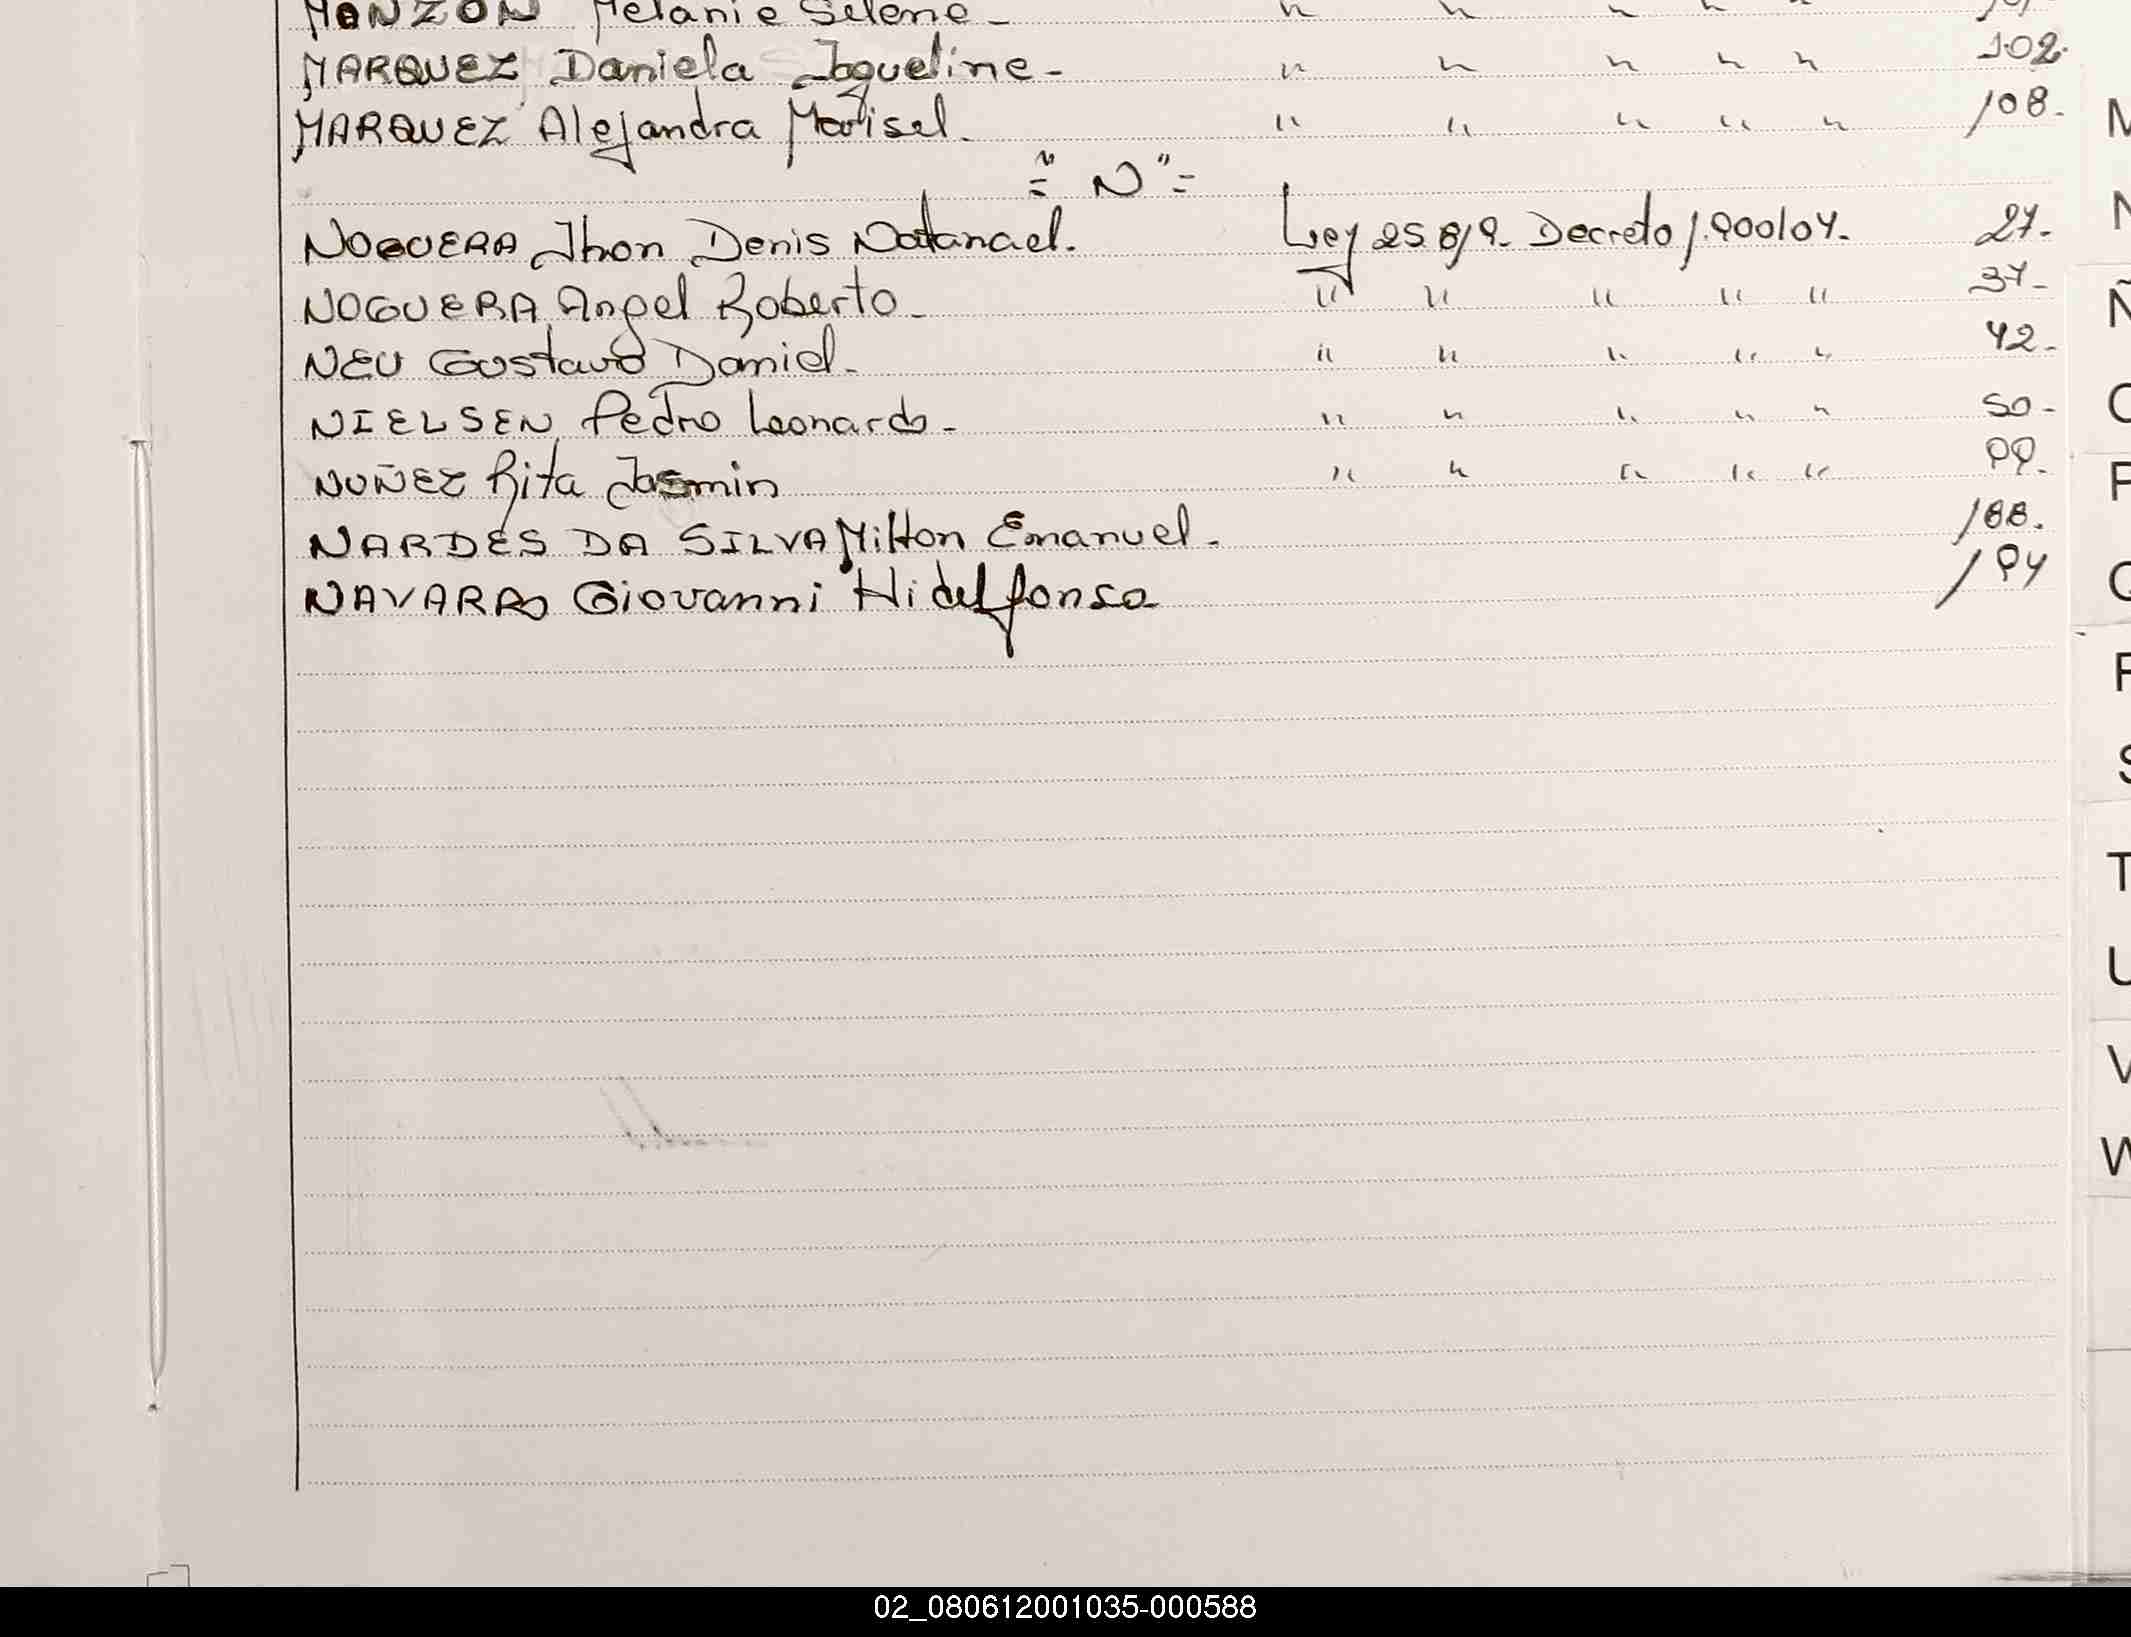 MONZON Melanie Selene - " " " " "
MARQUEZ Daniela Jaqueline - " " " " " 102.
MARQUEZ Alejandra Marisel. " " " " " 108.
= "N" =
NOGUERA Jhon Denis Natanael. Ley 25.819. Decreto 1.900/04. 27.
NOGUERA Angel Roberto - " " " " " 34-
NEU Gustavo Daniel - " " " " " 42-
NIELSEN Pedro Leonardo - " " " " " 50-
NUÑEZ Rita Jasmin " " " " " 99.
NARDES DA SILVA Milton Emanuel. 188.
NAVARRO Giovanni Hidelfonso 194
M
N
Ñ
O
P
Q
R
S
T
U
V
W
02_080612001035-000588